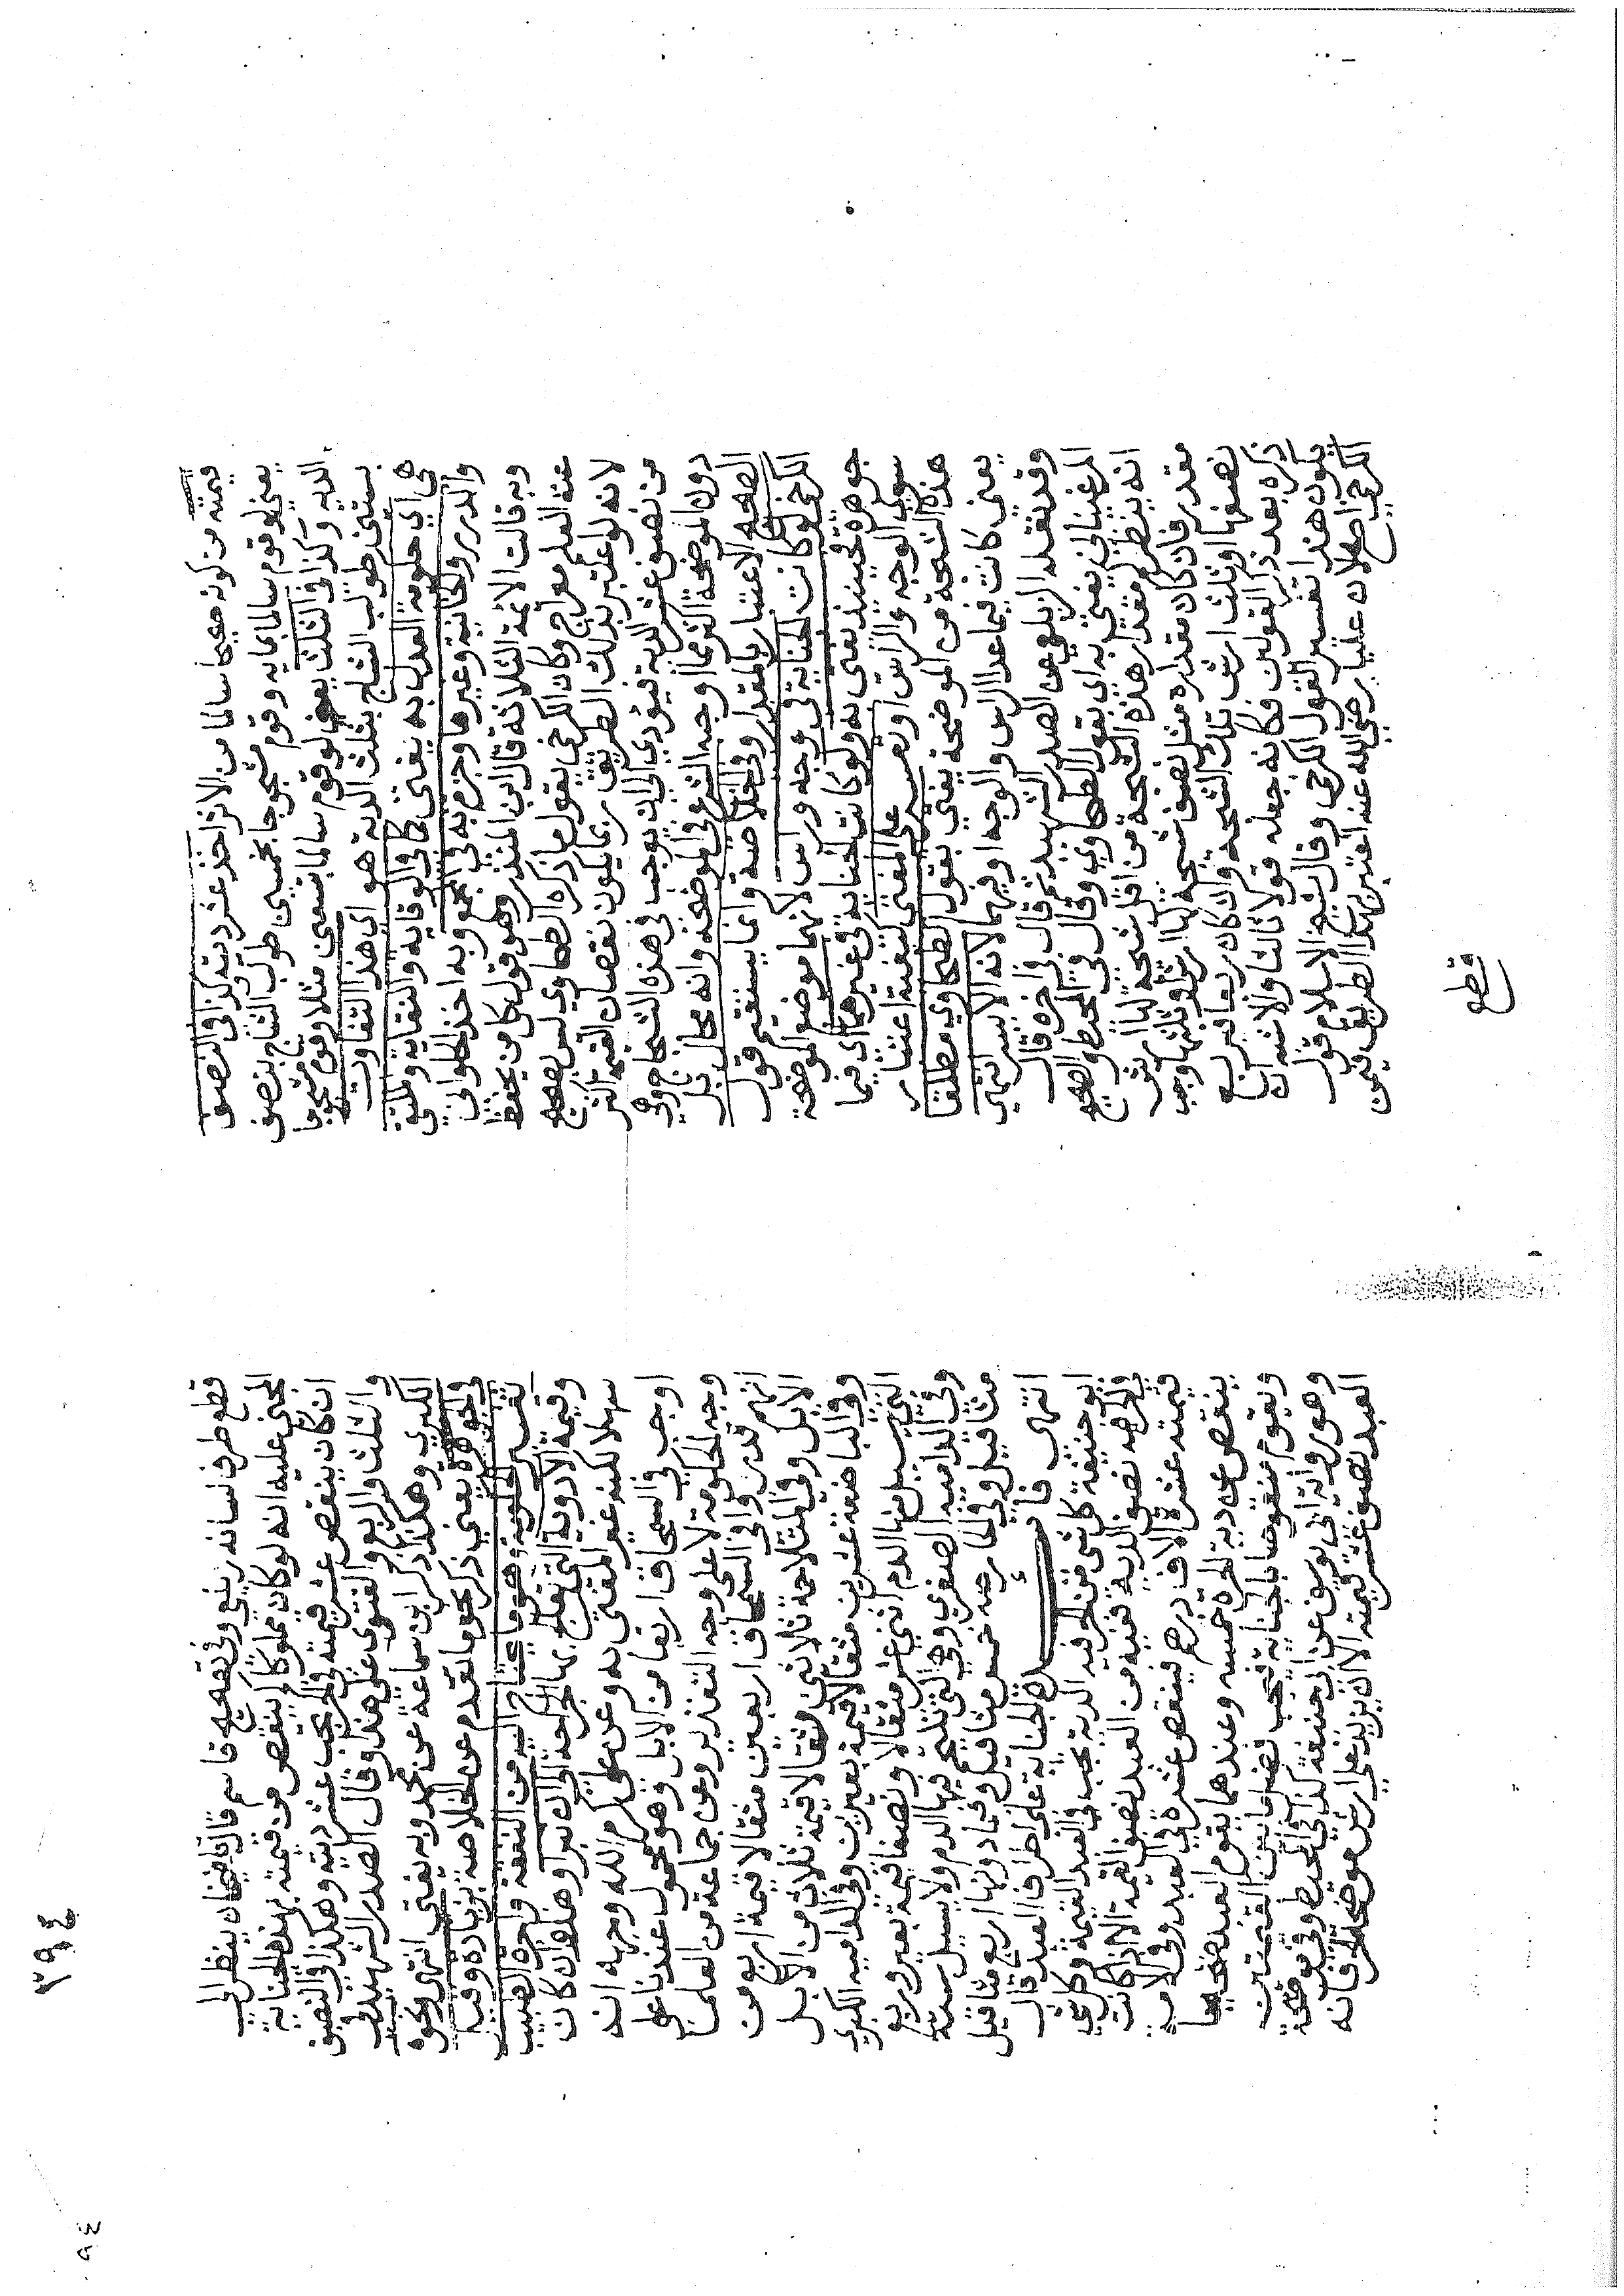 قيمته من كونه صحيحا سالما من الاثر اخذ عشر ديته كذا في النصف
يعني لو قوم سالما بمايه وقوم مشجوجا بخمسين طولب الشاج بنصف
الديه وكذا في الثلث يعني لو قوم سالما بتسعين مثلا وقوم مشجوجا
بستين طولب الشاج بثلث الدية هو اي هذا التفاوت
هي اي حكومة العدل به يفتى كما في الوقايه والنقايه والملتقى
والدرر والخانية وغيرها وجزم به في المجمع وبه اخذ الحلواني
وبه قالت الائمة الثلاثة قال ابن المنذر وهو قول كل من يحفظ
عنه العلم معراج وكان الكرخي يقول ما ذكره الطحاوي ليس بصحيح
لانه لو اعتبر بذلك الطريق ربما يكون نقصان القيمة اكثر
من نصف عشر الدية فيؤدي الى ان يوجب في هذه الشجاج وهي
دون الموضحة اكثر مما اوجبه الشرع في الموضحة وانه محال بل
الصحيح الاعتبار بالمقدار وفي الخلاصة وانما يستقيم قول
الكرخي لو كانت الجناية في وجه وراس لانهما موضع الموضحة
جوهرة فحينئذ يفتى به ولو كانت الجناية في غيرهما اي فيما
سوى الوجه والراس او تعسر على المفتي يفتي باعتبار
هذه الشجة من الموضحة يفتى بقول الطحاوي مطلقا
يعني كانت فيما عدا الراس والوجه او فيهما لانه الايسر انتهى
وقد نقله الزيلعي عن الصدر الشهيد ثم قال في اخره قال
المرغيناني يفتى به اي بقول الطحاوي وقال في المحيط والاصح
انه ينظر كم مقدار هذه الشجة من اقل شجة لها ارش
مقدر فان كان مقداره مثل نصف شجة لها ارش او ثلثها وجب
نصفها او ثلث ارش تلك الشجة وان كان ربعا فربع
ذكره بعد ذكر القولين فكانه جعله قولا ثالثا والاشبه ان
يكون هذا تفسير القول الكرخي وقال شيخ الاسلام قول
الكرخي اصح لان عليا رضي الله عنه اعتبر بهذا الطريق فيمن
قطع
٣٩٤
قطع طرف لسانه زيلعي وفي تصحيح قاسم قال قاضيخان ينظر الى
المجني عليه انه لو كان مملوكا كم ينقص من قيمته بهذه الجناية
ان كان ينقص عشر قيمته ففي الحر يجب عشر ديته وهكذا في النصف
والثلث والربع والفتوى على هذا وقال الصدر الشهيد في
الكبرى وهكذا ذكر ابن سماعة عن محمد وبه يفتى انتهى ونحوه
في الجوهرة يعني ذكر نحو ما تقدم عن الخلاصة بزيادة وقيل
تفسير الحكومة وهو ما يحتاج اليه من النفقة واجرة الطبيب
وقيمة الادوية التي تعالج بها الجراحة الى ان تبرا وهذا وان كان
سهلا لكنه غير المفتى به وعن علي كرم الله وجهه انه
اوجب في السمحاق اربعا من الابل وهو محمول عندنا على
وجه الحكومة لا على وجه التقدير وعن جماعة من العلما
انهم قدروا في السمحاق اربعين مثقالا قيمة اربع من
الابل وفي المتلاحمة ثلاثين مثقالا قيمة ثلاث من الابل
وفي الباضعة عشرين مثقالا قيمة بعيرين وفي الدامية الكبرى
التي يسيل منها الدم اثني عشر مثقالا ونصفا قيمة بعير وربع
وفي الدامية الصغرى وهي التي يلتحم فيها الدم ولا يسيل ستة
مثاقيل وفي الخارصة خمس مثاقيل وفيما دونها اربع مثاقيل
انتهى فائدة الجناية على اطراف العبد قال
ابو حنيفة كل شي من الحر فيه الدية يجب في العبد القيمة وكل شي
في الحر فيه نصف الدية ففيه من العبد نصف القيمة الا اذا كانت
قيمته عشرة الاف درهم فينقص عشرة في العبد وفي الامة
ينقص عن دية الحرة خمسة وعندهما يقوم العبد صحيحا
ويقوم منقوصا بالجناية فيجب فضل ما بين القيمتين
وهو رواية ابي يوسف عن ابي حنيفة كذا في المحيط وفي موضحة
العبد نصف عشر قيمته الا ان يزيد على ارش موضحة الحر فانه